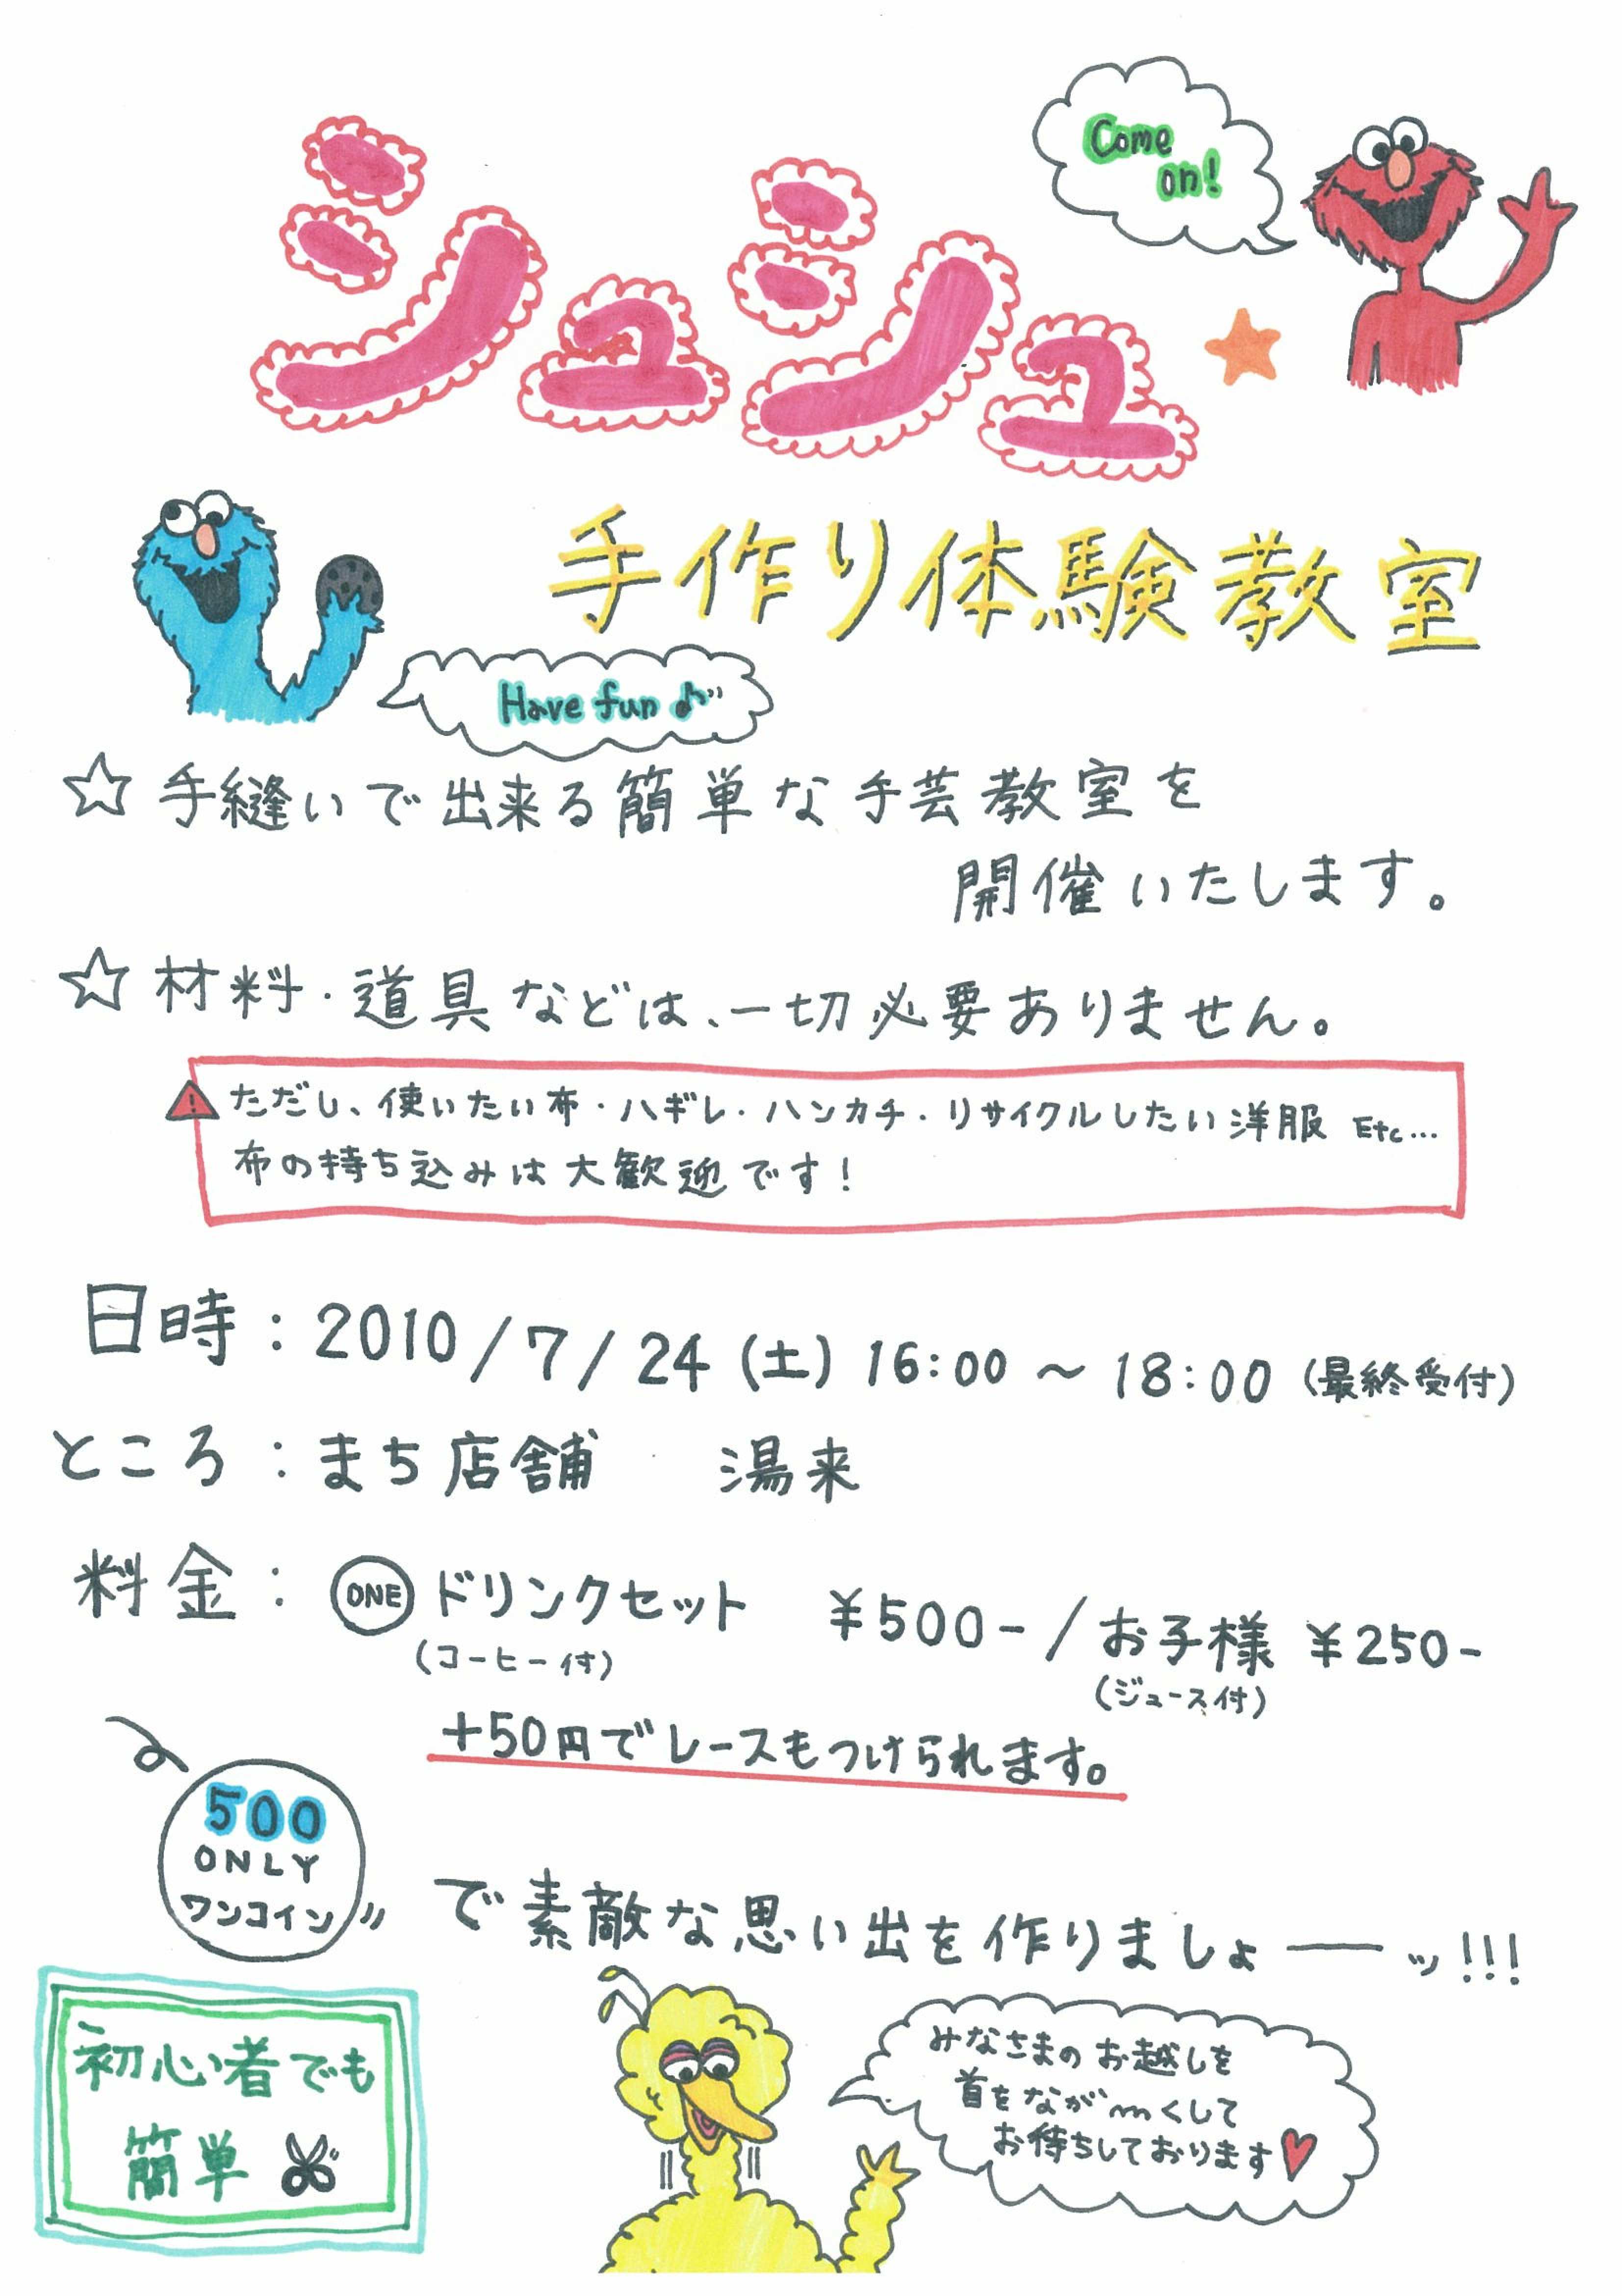 Come
on!
シュシュ
手作り体験教室
Have fun ♪
☆ 手縫いで出来る簡単な手芸教室を
開催いたします。
☆ 材料・道具などは、一切必要ありません。
ただし、使いたい布・ハギレ・ハンカチ・リサイクルしたい洋服 Etc…
布の持ち込みは大歓迎です!
日時:2010/7/24(土)16:00~18:00(最終受付)
ところ:まち店舗 湯来
料金:ONE ドリンクセット ¥500-/お子様 ¥250-
(コーヒー付)
(ジュース付)
+50円でレースもつけられます。
500
ONLY
ワンコイン
で素敵な思い出を作りましょーッ!!!
初心者でも
簡単
みなさまのお越しを
首をなが〜くして
お待ちしております♥